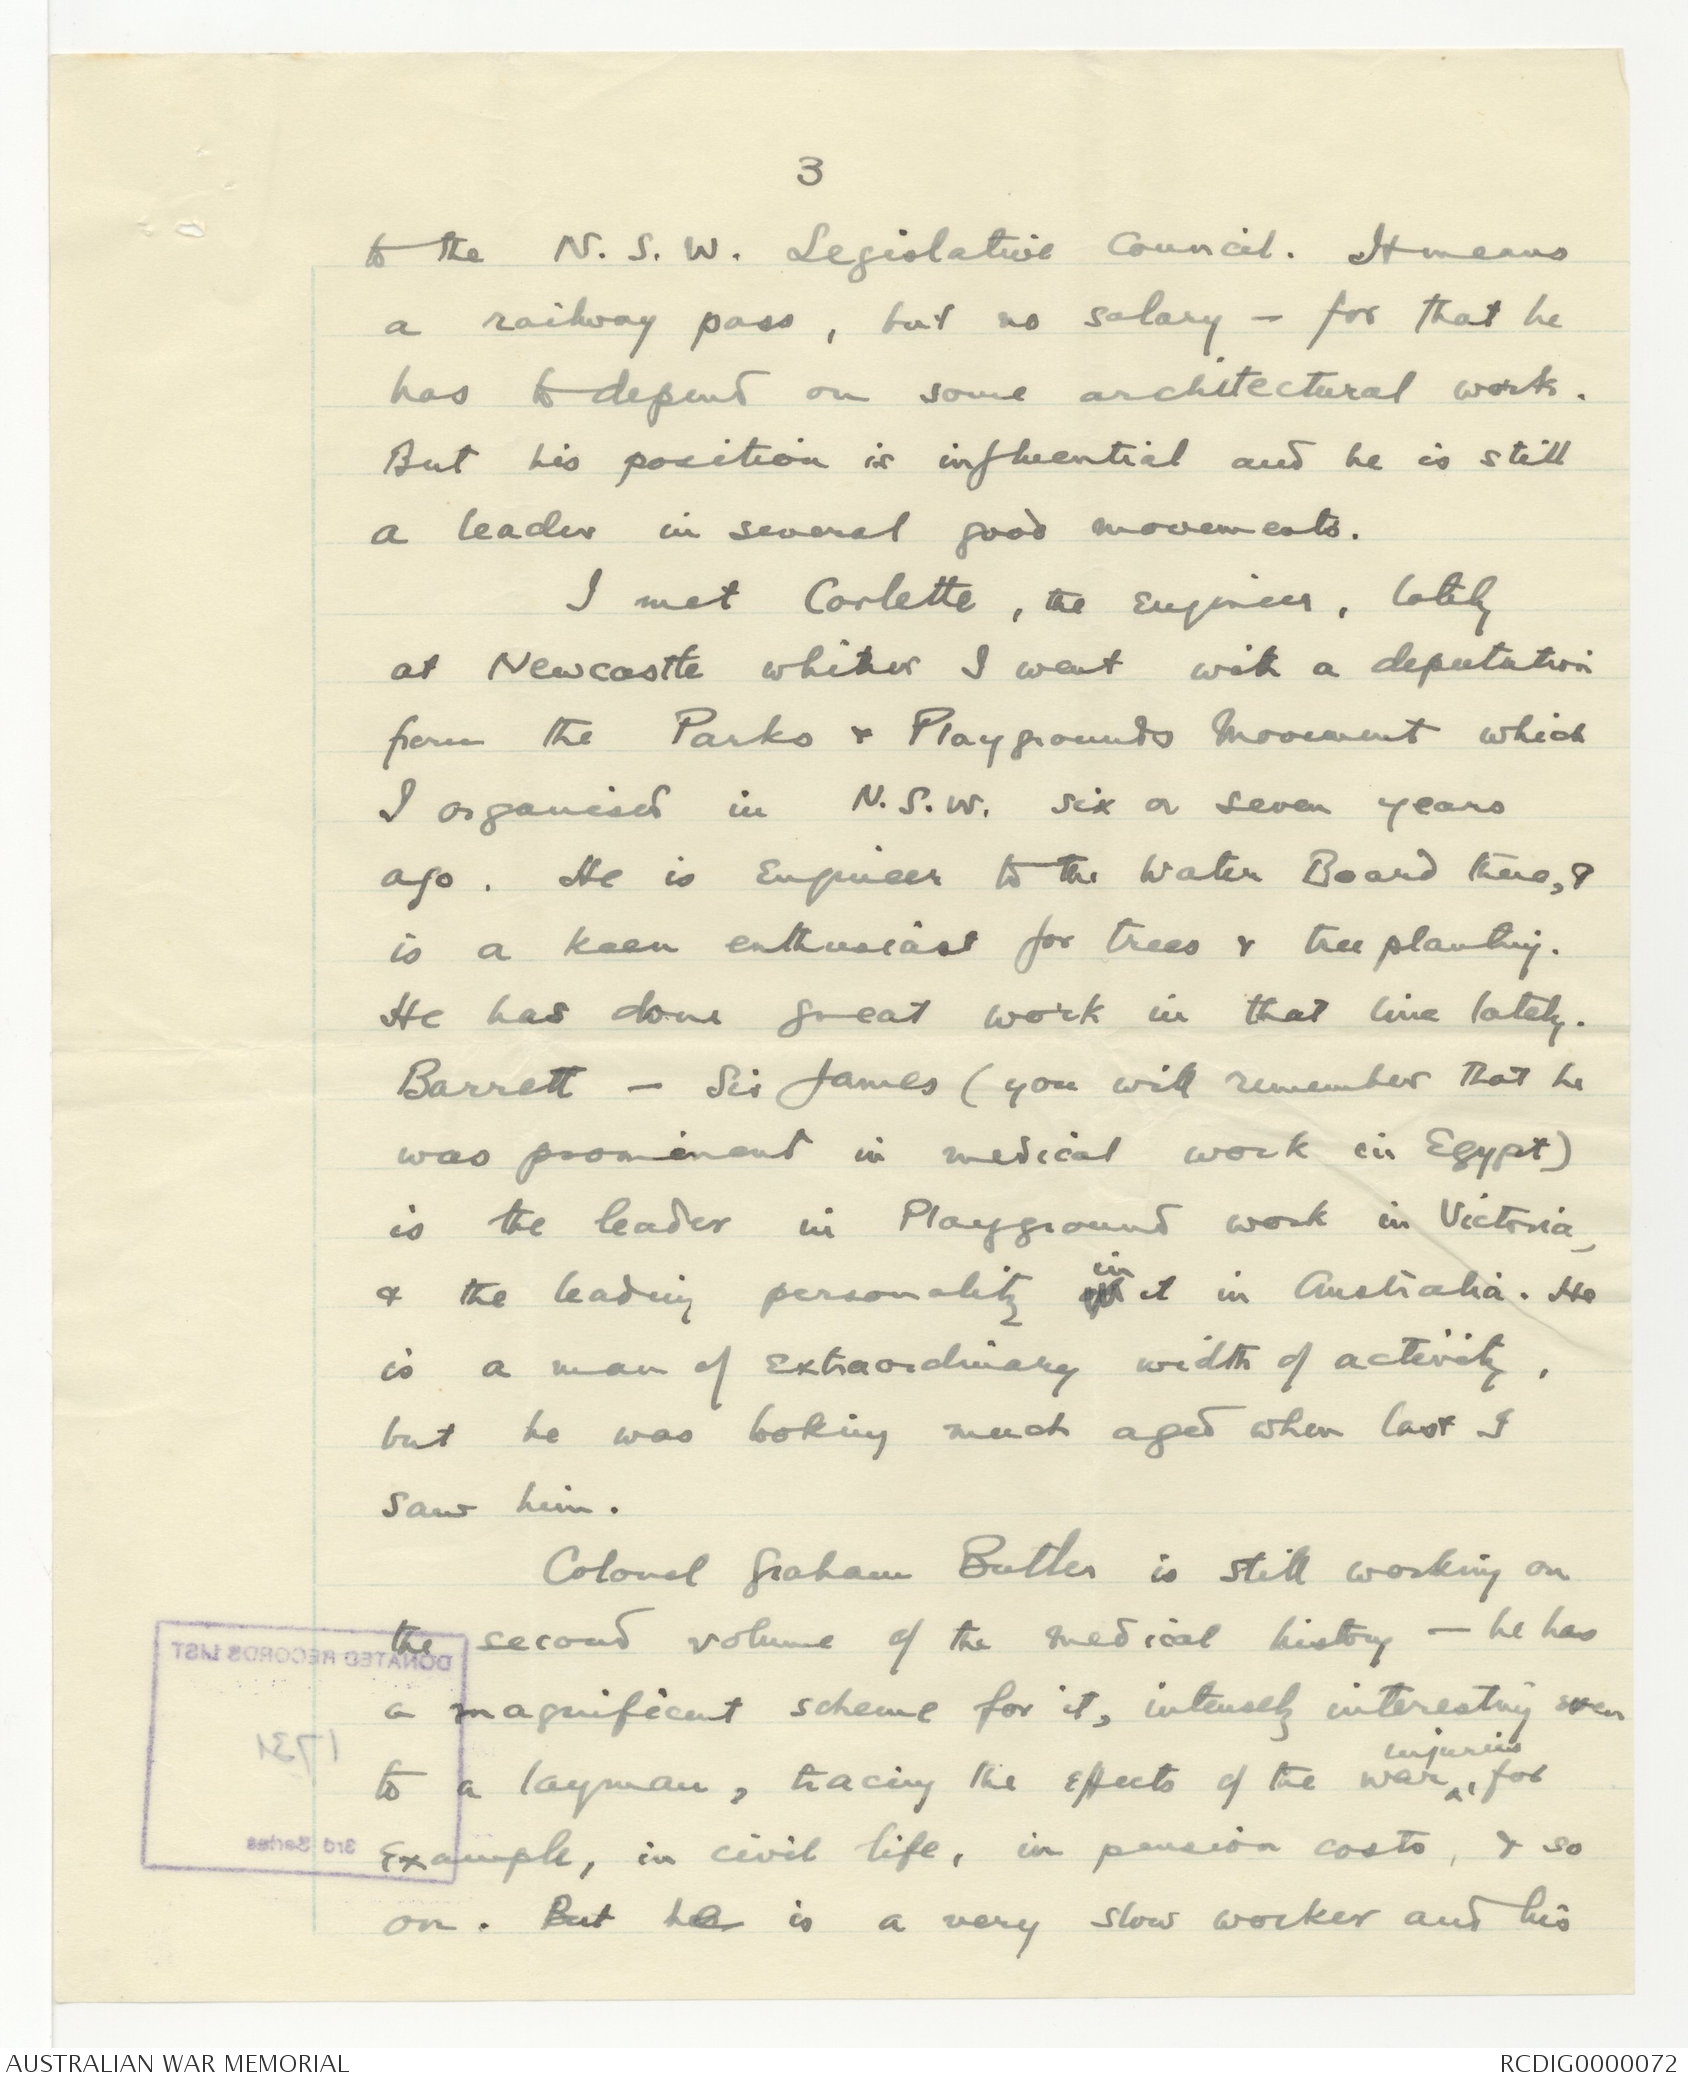 3
to the N.S.W. Legislative Council. It means
a railway pass, but no salary - for that he
has to depend on some architectural work.
But his position is influential and he is still
a leader in several good movements.
I met Corlette, the Engineer, lately
at Newcastle whither I went with a deputation
from the Parks & Playgrounds Movement which
I organised in N.S.W. six or seven years
ago. He is Engineer to the Water Board there, &
is a keen enthusiast for trees & tree planting.
He has done great work in that line lately.
Barrett - Sir James (you will remember that he
was prominent in medical work in Egypt)
is the leader in Playground work in Victoria,
& the leading personality in it in Australia. He
is a man of extraordinary width of activity,
but he was looking much aged when last I
saw him.
Colonel Graham Butler is still working on
the second volume of the medical history - he has
a magnificent scheme for it, intensely interesting even
to a layman, tracing the effects of the war injuries, for
example, in civil life, in pension costs, & so
on. But he is a very slow worker and his
DONATED RECORDS LIST
1731
3rd Series
AUSTRALIAN WAR MEMORIAL
RCDIG0000072